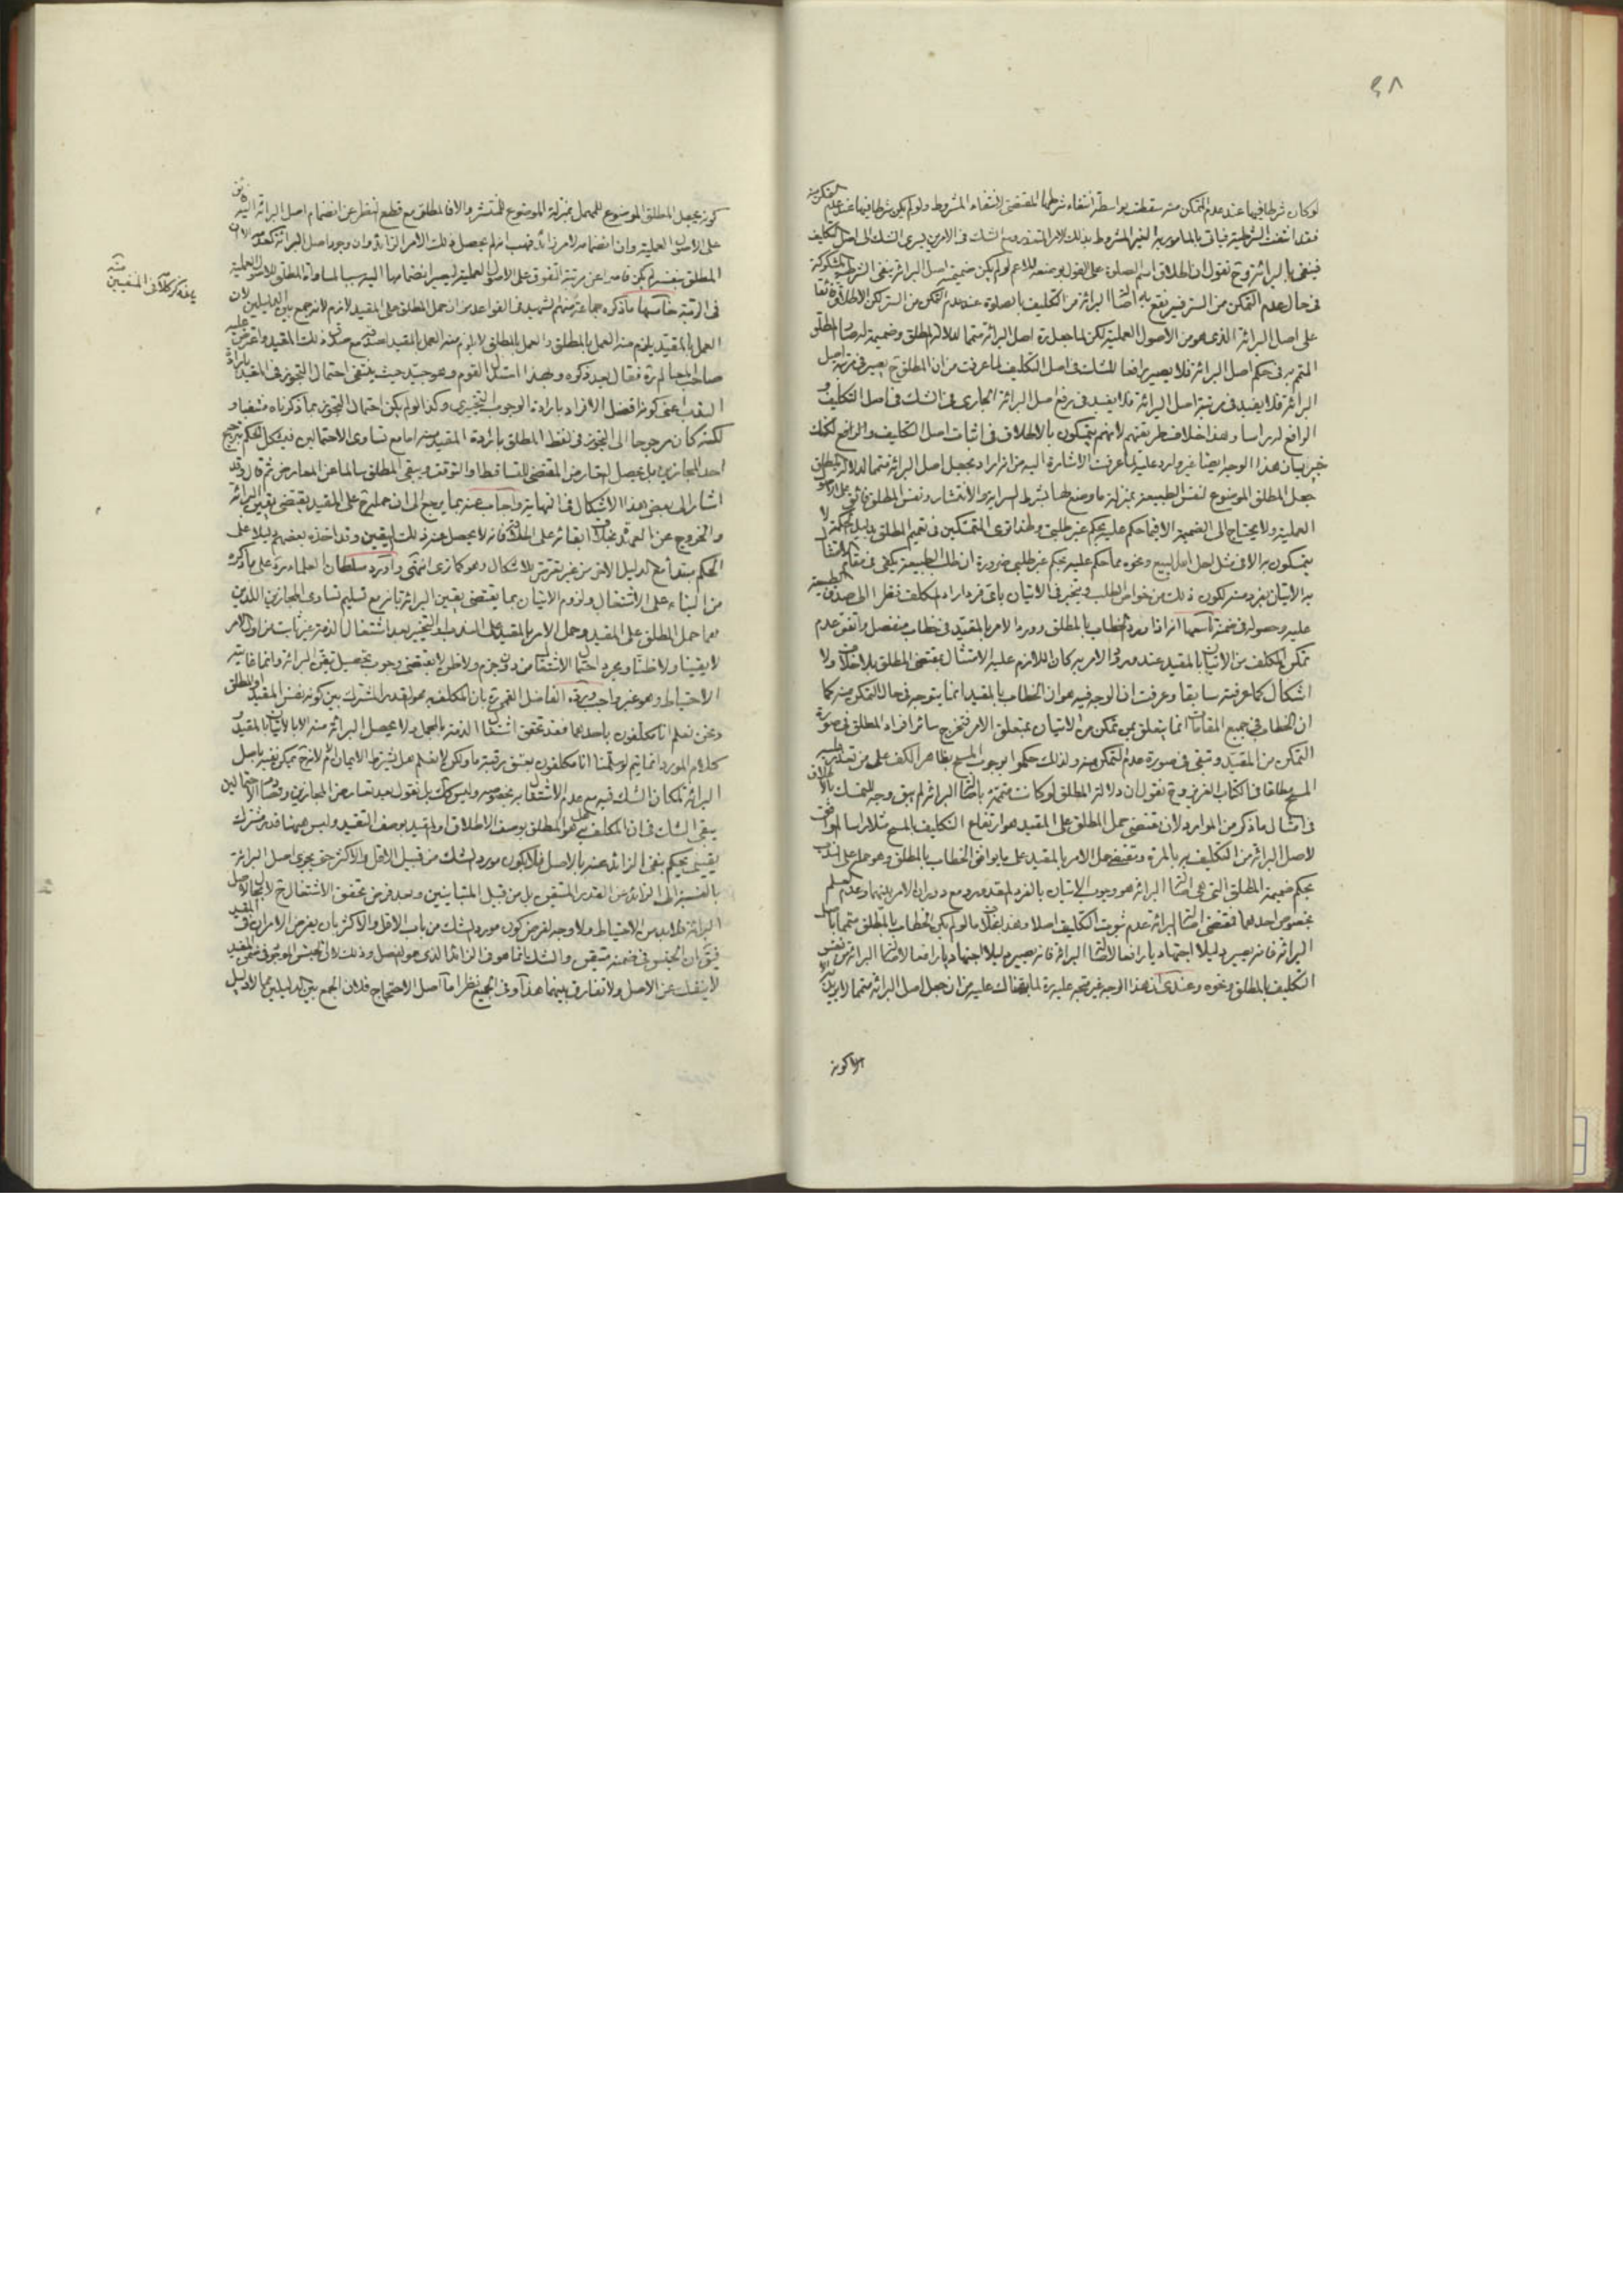 ٤٨
لو كان شرطا فيها عند عدم التمكن منه سقطت بواسطة انتفاء شرطها المقتضى لانتفاء المشروط ولو لم يكن شرطا فيها عند عدم التمكن منه
فقد انتفت الشرطية فياتى بالمامور به الغير المشروط بذلك الامر المتعذر ومع الشك فى الامرين يسرى الشك الى اصل التكليف
فينفى بالبرائة وح نقول ان اطلاق اسم الصلوة على القول بوضعه للاعم لو لم يكن ضميمة اصل البرائة ينفى الشرطية المشكوكة
فى حال عدم التمكن من الستر فيرتفع به البرائة من التكليف بالصلوة عند عدم التمكن من الستر لكن الاطلاق
على اصل البرائة الذى هو من الاصول العملية لكن لما جعل ره اصل البرائة متمما لدلالة المطلق وضميمة له صار المطلق
المتمم به فى حكم اصل البرائة فلا يصير رافعا للشك فى اصل التكليف لما عرفت من ان المطلق ح يصير فى مرتبة اصل
البرائة فلا يفيد فى مرتبة اصل البرائة فلا يفيد فى رفع اصل البرائة الجارى فى الشك فى اصل التكليف و
الرافع له راسا وهذا خلاف طريقتهم لانهم يتمسكون بالاطلاق فى اثبات اصل التكليف والرافع لكنك
خبير بان هذا الوجه ايضا غير وارد عليه لما عرفت الاشارة اليه من انه اراد بجعل اصل البرائة متمما لدلالة المطلق
جعل المطلق الموضوع لنفس الطبيعة بمنزلة ما وضع لها بشرط السراية والانتشار ونفس المطلق فائق على الاصول
العملية ولا يحتاج الى الضميمة الا فيما حكم عليه بحكم غير طلبى ولهذا ترى المتمسكين فى تعميم المطلق بدليل الحكمة لا
يتمسكون به الا فى مثل احل الله البيع ونحوه مما حكم عليه بحكم غير طلبى ضرورة ان طلب الطبيعة يكفى فى مقام الامتثال
به الاتيان بفرد منه لكون ذلك من خواص الطلب ويتخير فى الاتيان باى فرد اراد المكلف نظرا الى صدق الطبيعة
عليه وحصوله فى ضمنه تاسعها انه اذا ورد الخطاب بالمطلق وورد الامر بالمقيد فى خطاب منفصل واتفق عدم
تمكن المكلف من الاتيان بالمقيد عند ورود الامر به كان اللازم عليه الامتثال بمقتضى المطلق بلا خلاف ولا
اشكال كما عرفته سابقا وعرفت ان الوجه فيه هو ان الخطاب بالمقيد انما يتوجه فى حال التمكن منه كما
ان الخطاب فى جميع المقامات انما يتعلق بمن تمكن من الاتيان بمتعلق الامر فتخرج سائر افراد المطلق فى صورة
التمكن من المقيد وتبقى فى صورة عدم التمكن منه ولذلك حكموا بوجوب المسح بظاهر الكف على من تعذر عليه
المسح مطلقا فى الكتاب العزيز وح نقول ان دلالة المطلق لو كانت متممة باصل البرائة لم يبق وجه للتمسك بالاطلاق
فى امثال ما ذكر من الموارد لان مقتضى حمل المطلق على المقيد هو ارتفاع التكليف المسح مثلا راسا الموافق
لاصل البرائة من التكليف به بالمرة ومقتضى حمل الامر بالمقيد على ما يوافق الخطاب بالمطلق وهو حمله على الندب
بحكم ضميمة المطلق التى هى اصل البرائة هو وجوب الاتيان بالفرد المقدور ومع دوران الامر بينهما وعدم العلم
بخصوص احدهما فمقتضى اصل البرائة عدم ثبوت التكليف اصلا وهذا بخلاف ما لو لم يكن الخطاب بالمطلق متمما باصل
البرائة فانه يصير دليلا اجتهاديا رافعا لاصل البرائة فانه يصير دليلا اجتهاديا رافعا لاصل البرائة من نفس
التكليف بالمطلق ونحوه وعندى ان هذا الوجه غير متجه عليه ره لما نبهناك عليه من ان جعل اصل البرائة متمما لا يريد به
الا كونه
كونه يجعل المطلق الموضوع للمهمل بمنزلة الموضوع للمنتشر والا فالمطلق مع قطع النظر عن انضمام اصل البرائة اليه فائق
على الاصول العملية وان انضمامه لامر زائد فهب انه لم يحصل ذلك الامر الزائد وان وجود اصل البرائة كعدمه الا ان
المطلق بنفسه لم يكن قاصرا عن مرتبة التفوق على الاصول العملية ليصير انضمامها اليه سببا لمساواة المطلق للاصول العملية
فى الرتبة خامسها ما ذكره جماعة منهم الشهيد فى القواعد من ان حمل المطلق على المقيد لازم لانه جمع بين الدليلين لان
العمل بالمقيد يلزم منه العمل بالمطلق والعمل بالمطلق لا يلزم منه العمل بالمقيد لصدقه مع صدق ذلك المقيد واعترض عليه
صاحب المعالم ره فقال بعد ذكره وبهذا استدل القوم وهو جيد حيث ينتفى احتمال التجوز فى المقيد بارادة
الندب اعنى كونه افضل الافراد بارادة الوجوب التخييرى وكذا لو لم يكن احتمال التجوز بما ذكرناه منتفيا و
لكنه كان مرجوحا الى التجوز فى لفظ المطلق بارادة المقيد منه اما مع تساوى الاحتمالين فيشكل الحكم بترجيح
احد المجازين بل يحصل التعارض المقتضى للتساقط او التوقف ويبقى المطلق سالما عن المعارض ثم قال وقد
اشار الى بعض هذا الاشكال فى النهاية واجاب عنه بما يرجع الى ان حمله ره على المقيد يقتضى يقين البرائة
والخروج عن العهدة بخلاف ابقائه على اطلاقه فانه لا يحصل عنه ذلك اليقين وقد اخذه بعضهم دليلا على
الحكم مبتدأ مع الدليل الاخر من غير تعرض للاشكال وهو كما ترى انتهى واورد سلطان العلماء ره على ما ذكره
من البناء على الاشتغال ولزوم الاتيان بما يقتضى يقين البرائة بانه مع تسليم تساوى المجازين اللذين
هما حمل المطلق على المقيد وحمل الامر بالمقيد على الندب او التخيير بعد اشتغال الذمة غير ثابت من اول الامر
لا يقينا ولا ظنا ومجرد احتمال الاشتغال من دون جزم ولا ظن لا يقتضى وجوب تحصيل يقين البرائة وانما غايته
الاحتياط وهو غير واجب ورده الفاضل القمى ره بان المكلف به هو القدر المشترك بين كونه نفس المقيد او المطلق
ونحن نعلم انا مكلفون باحدهما فقد تحقق اشتغال الذمة بالمجمل ولا يحصل البرائة منه الا بالاتيان بالمقيد
كلام المورد انما يتم لو سلمنا انا مكلفون بعتق رقبة ما ولكن لا نعلم هل يشترط الايمان ام لا فح يمكن نفيه باصل
البرائة لمكان الشك فيه مع عدم الاشتغال به بخصوصه وليس كذلك بل نقول بعد تعارض المجازين وتصادم الاحتمالين
يبقى الشك فى ان المكلف به هل هو المطلق بوصف الاطلاق او المقيد بوصف التقييد وليس هيهنا قدر مشترك
يقينى يحكم بنفى الزائد عنه بالاصل فلا يكون مورد الشك من قبيل الاقل والاكثر حتى يجرى اصل البرائة
بالنسبة الى الزائد عن القدر المتيقن بل من قبيل المتباينين وبعد فرض تحقق الاشتغال ح لا مجال لاصل
البرائة فلا بد من الاحتياط ولا وجه لفرض كون مورد الشك من باب الاقل والاكثر بان يفرض الامر ان عتق المقيد
فيق ان الجنس فى ضمنه متيقن والشك انما هو فى الزائد الذى هو الفصل وذلك لان الجنس الموجود فى ضمن المقيد
لا ينفك عن الاصل ولا تفارق بينهما هذا وفى الجميع نظر اما اصل الاحتجاج فلان الجمع بين الدليلين مما لا دليل